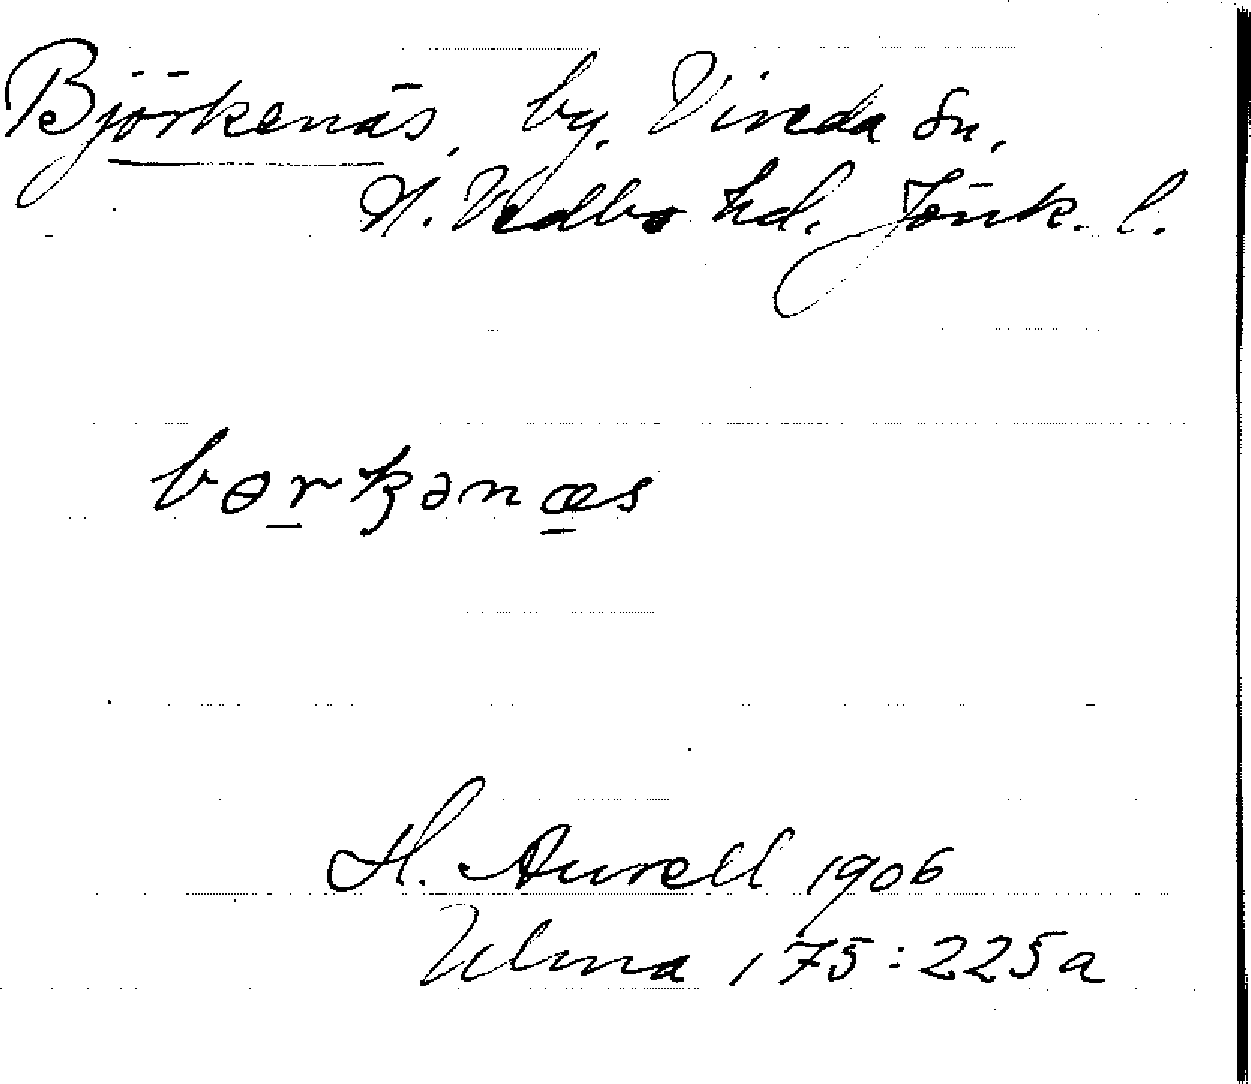 Björkenäs, by, Vireda sn,
N. Vedbo hd. Jönk. l.
bərkənæs
H. Aurell 1906
Ulma 175:225a